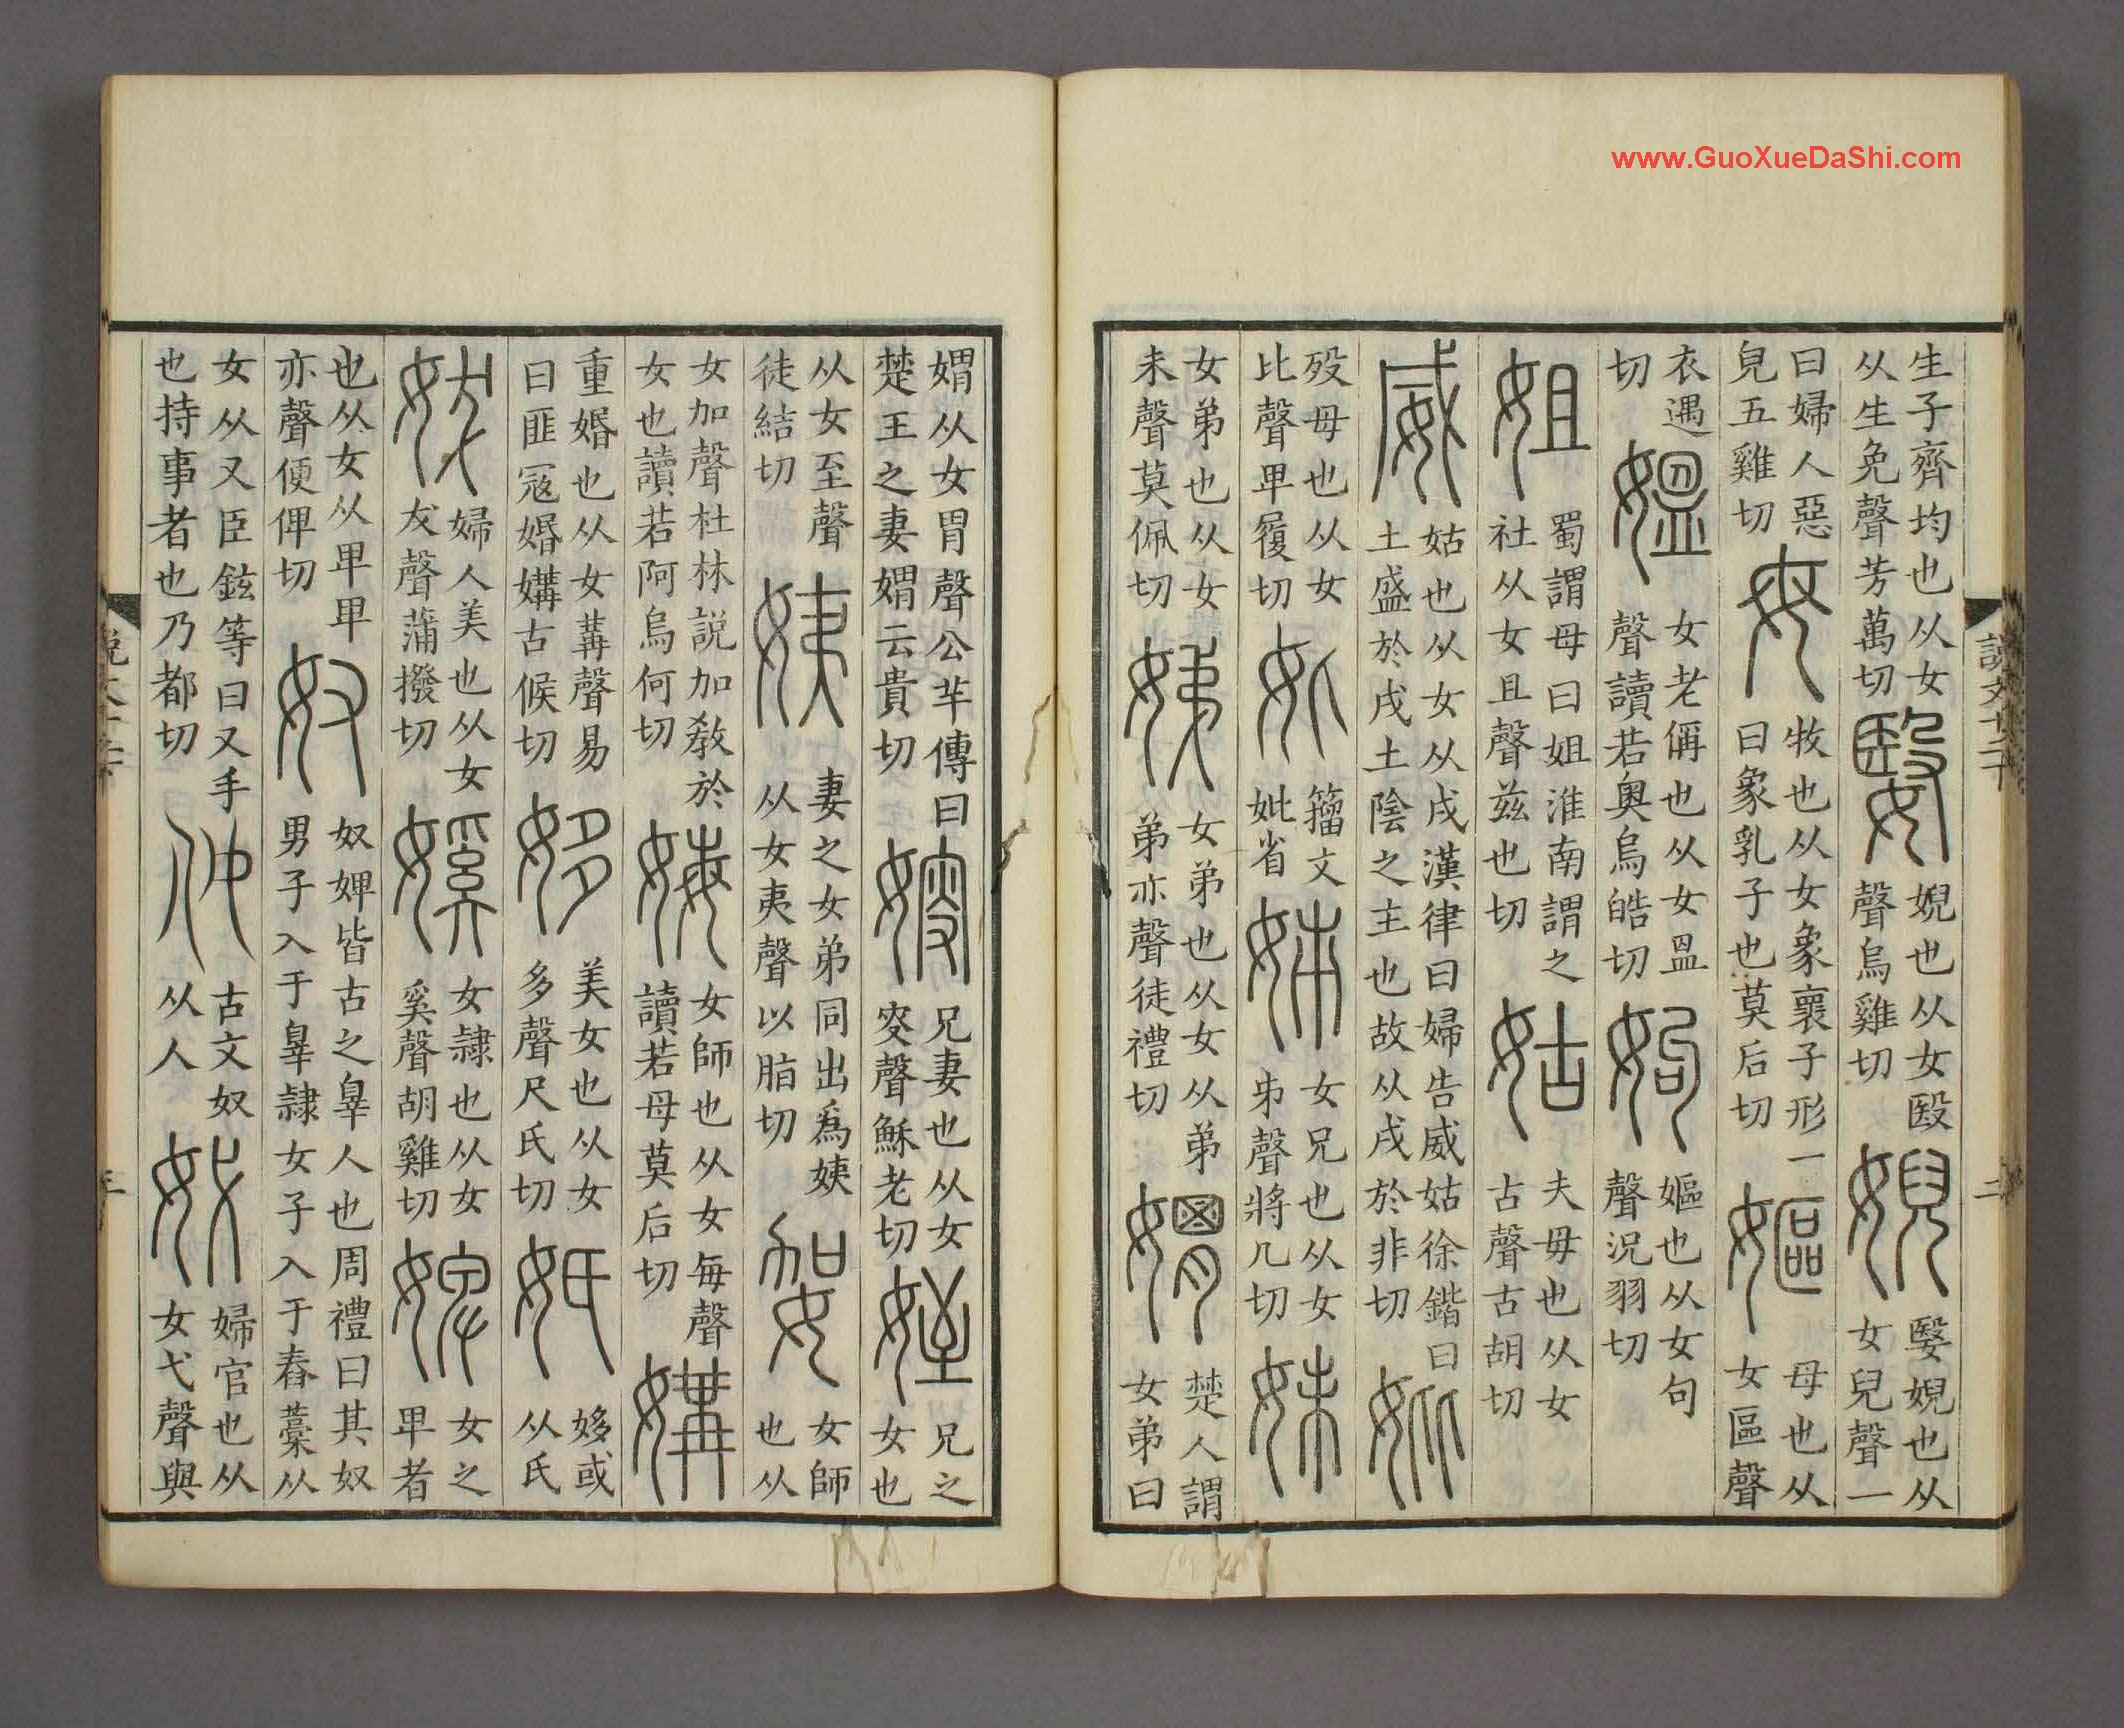 生子齊均也从女从生免聲芳萬切嫛婗也从女殹聲烏雞切婗嫛婗也从女兒聲一
曰婦人惡皃五雞切母牧也从女象褱子形一曰象乳子也莫后切嫗母也从女區聲
衣遇切媼女老偁也从女𥁕聲讀若奧烏皓切姁嫗也从女句聲況羽切
姐蜀謂母曰姐淮南謂之社从女且聲兹也切姑夫母也从女古聲古胡切
威姑也从女从戌漢律曰婦告威姑徐鍇曰土盛於戌土陰之主也故从戌於非切妣
歿母也从女比聲卑履切𡚧籒文妣省姊女兄也从女𠂔聲將几切妹
女弟也从女未聲莫佩切娣女弟也从女从弟弟亦聲徒禮切媦楚人謂女弟曰
說文十二下
二
媦从女胃聲公羊傳曰楚王之妻媦云貴切㛮兄妻也从女叜聲穌老切姪兄之女也
从女至聲徒結切姨妻之女弟同出爲姨从女夷聲以脂切妿女師也从
女加聲杜林說加敎於女也讀若阿烏何切娒女師也从女每聲讀若母莫后切媾
重婚也从女冓聲易曰匪寇婚媾古候切姼美女也从女多聲尺氏切㚷姼或从氏
妭婦人美也从女犮聲蒲撥切㜎女隷也从女奚聲胡雞切婢女之卑者
也从女从卑卑亦聲便俾切奴奴婢皆古之辠人也周禮曰其奴男子入于辠隷女子入于舂藁从
女从又臣鉉等曰又手也持事者也乃都切㐐古文奴从人㚤婦官也从女弋聲與
www.GuoXueDaShi.com